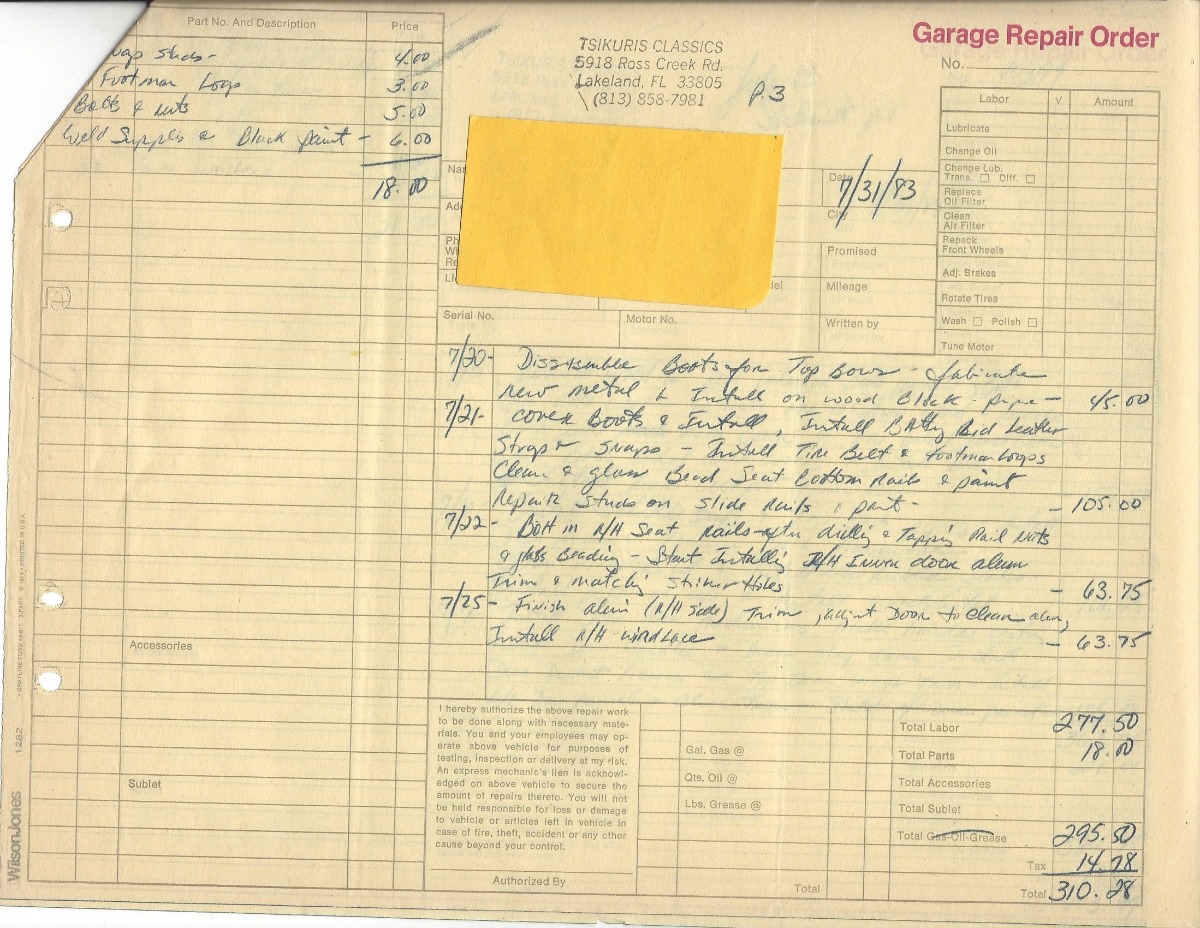 Part No. And Description Price
studs - 4.00
Footman Loops 3.00
Bolts & nuts 5.00
Weld Supplies & Black paint - 6.00
18.00
TSIKURIS CLASSICS
5918 Ross Creek Rd.
Lakeland, FL 33805
(813) 858-7981
P.3
Garage Repair Order
No.
Labor √ Amount
Lubricate
Change Oil
Change Lub.
Trans. Diff.
Replace
Oil Filter
Clean
Air Filter
Repack
Front Wheels
Adj. Brakes
Rotate Tires
Wash Polish
Tune Motor
Date 7/31/93
City
Promised
Mileage
Serial No. Motor No. Written by
7/20- Dissasemble Boots for Top Bows - fabricate
new metal & Install on wood Block - - 45.00
7/21- cover Boots & Install, Install Battery Bid Leather
Straps & Snaps - Install Tire Belt & footman Loops
Clean & glass Bead Seat bottom rails & paint
Repair Studs on slide rails & paint - - 105.00
7/22- Bolt in R/H Seat rails after drilling & Tapping Rail Nuts
& glass beading - Start Installing R/H Inner door alum
Trim & matching Striker Holes - 63.75
7/25- Finish alum (R/H side) Trim, adjust Door to Clear alum,
Install R/H windlace - 63.75
Accessories
Sublet
I hereby authorize the above repair work
to be done along with necessary mate-
rials. You and your employees may op-
erate above vehicle for purposes of
testing, inspection or delivery at my risk.
An express mechanic's lien is acknowl-
edged on above vehicle to secure the
amount of repairs thereto. You will not
be held responsible for loss or damage
to vehicle or articles left in vehicle in
case of fire, theft, accident or any other
cause beyond your control.
Authorized By
Gal. Gas @
Qts. Oil @
Lbs. Grease @
Total
Total Labor 277.50
Total Parts 18.00
Total Accessories
Total Sublet
Total Gas-Oil-Grease 295.50
Tax 14.78
Total 310.28
WilsonJones
1282
GRAYLINE FORM 44-811 3-PART © 1972 • PRINTED IN U.S.A.